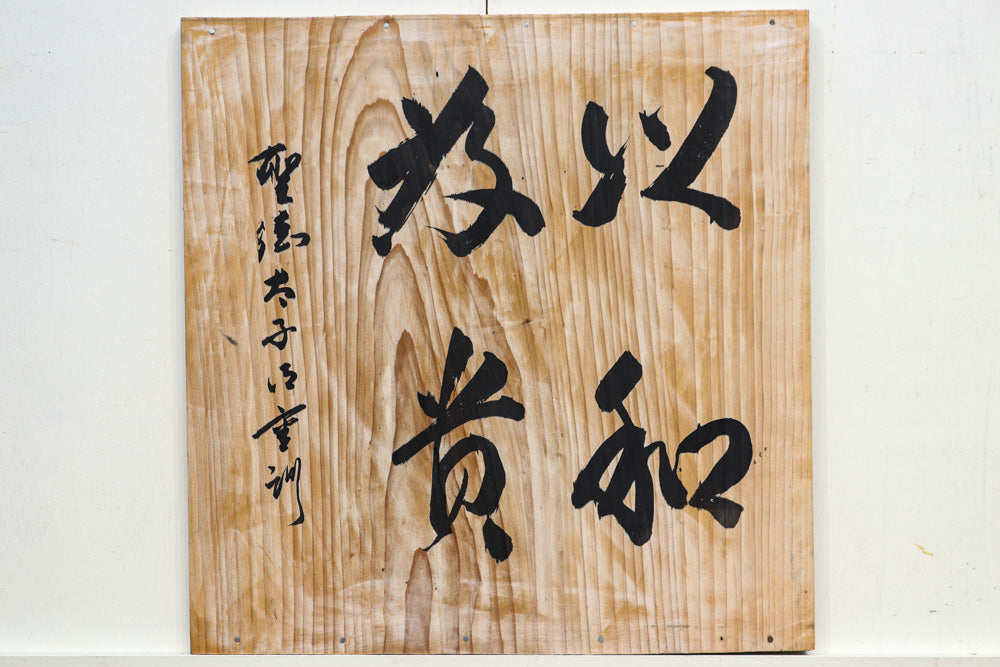 以和
為貴
聖徳太子御垂訓